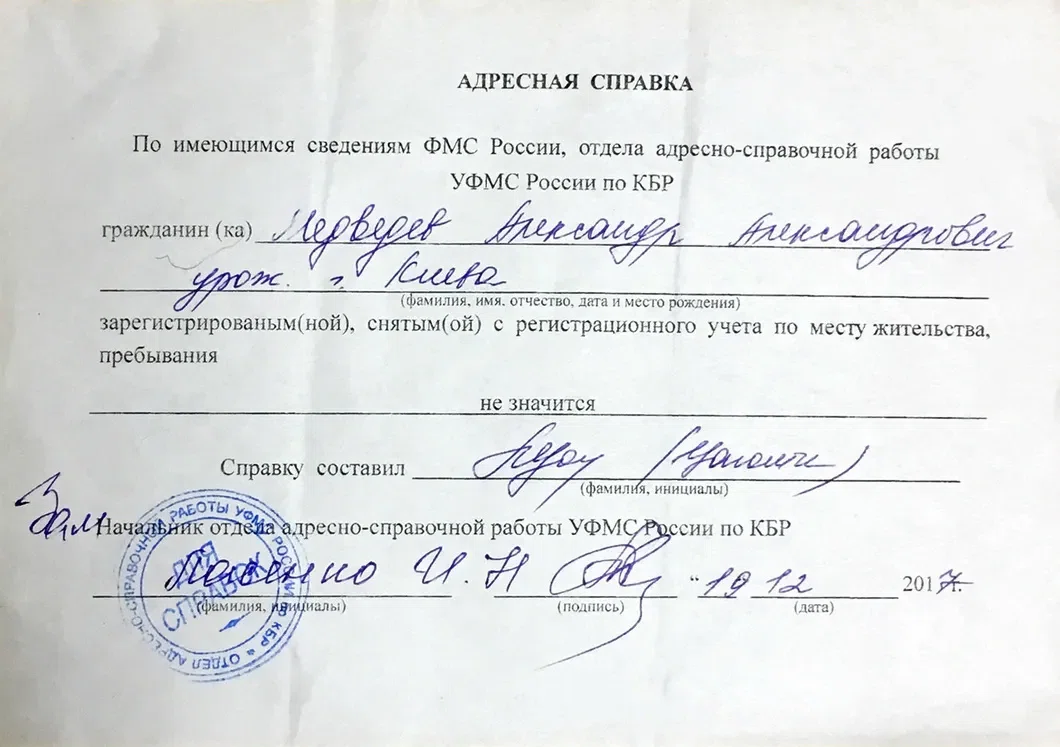 АДРЕСНАЯ СПРАВКА
По имеющимся сведениям ФМС России, отдела адресно-справочной работы
УФМС России по КБР
гражданин (ка) Медведев Александр Александрович
урож. г. Киева
(фамилия, имя, отчество, дата и место рождения)
зарегистрированым(ной), снятым(ой) с регистрационного учета по месту жительства,
пребывания
не значится
Справку составил
(фамилия, инициалы)
Зам
Начальник отдела адресно-справочной работы УФМС России по КБР
И. Н " 19 12 2017г.
(фамилия, инициалы) (подпись) (дата)
ОТДЕЛ АДРЕСНО-СПРАВОЧНОЙ РАБОТЫ УФМС РОССИИ ПО КБР
ДЛЯ
СПРАВОК